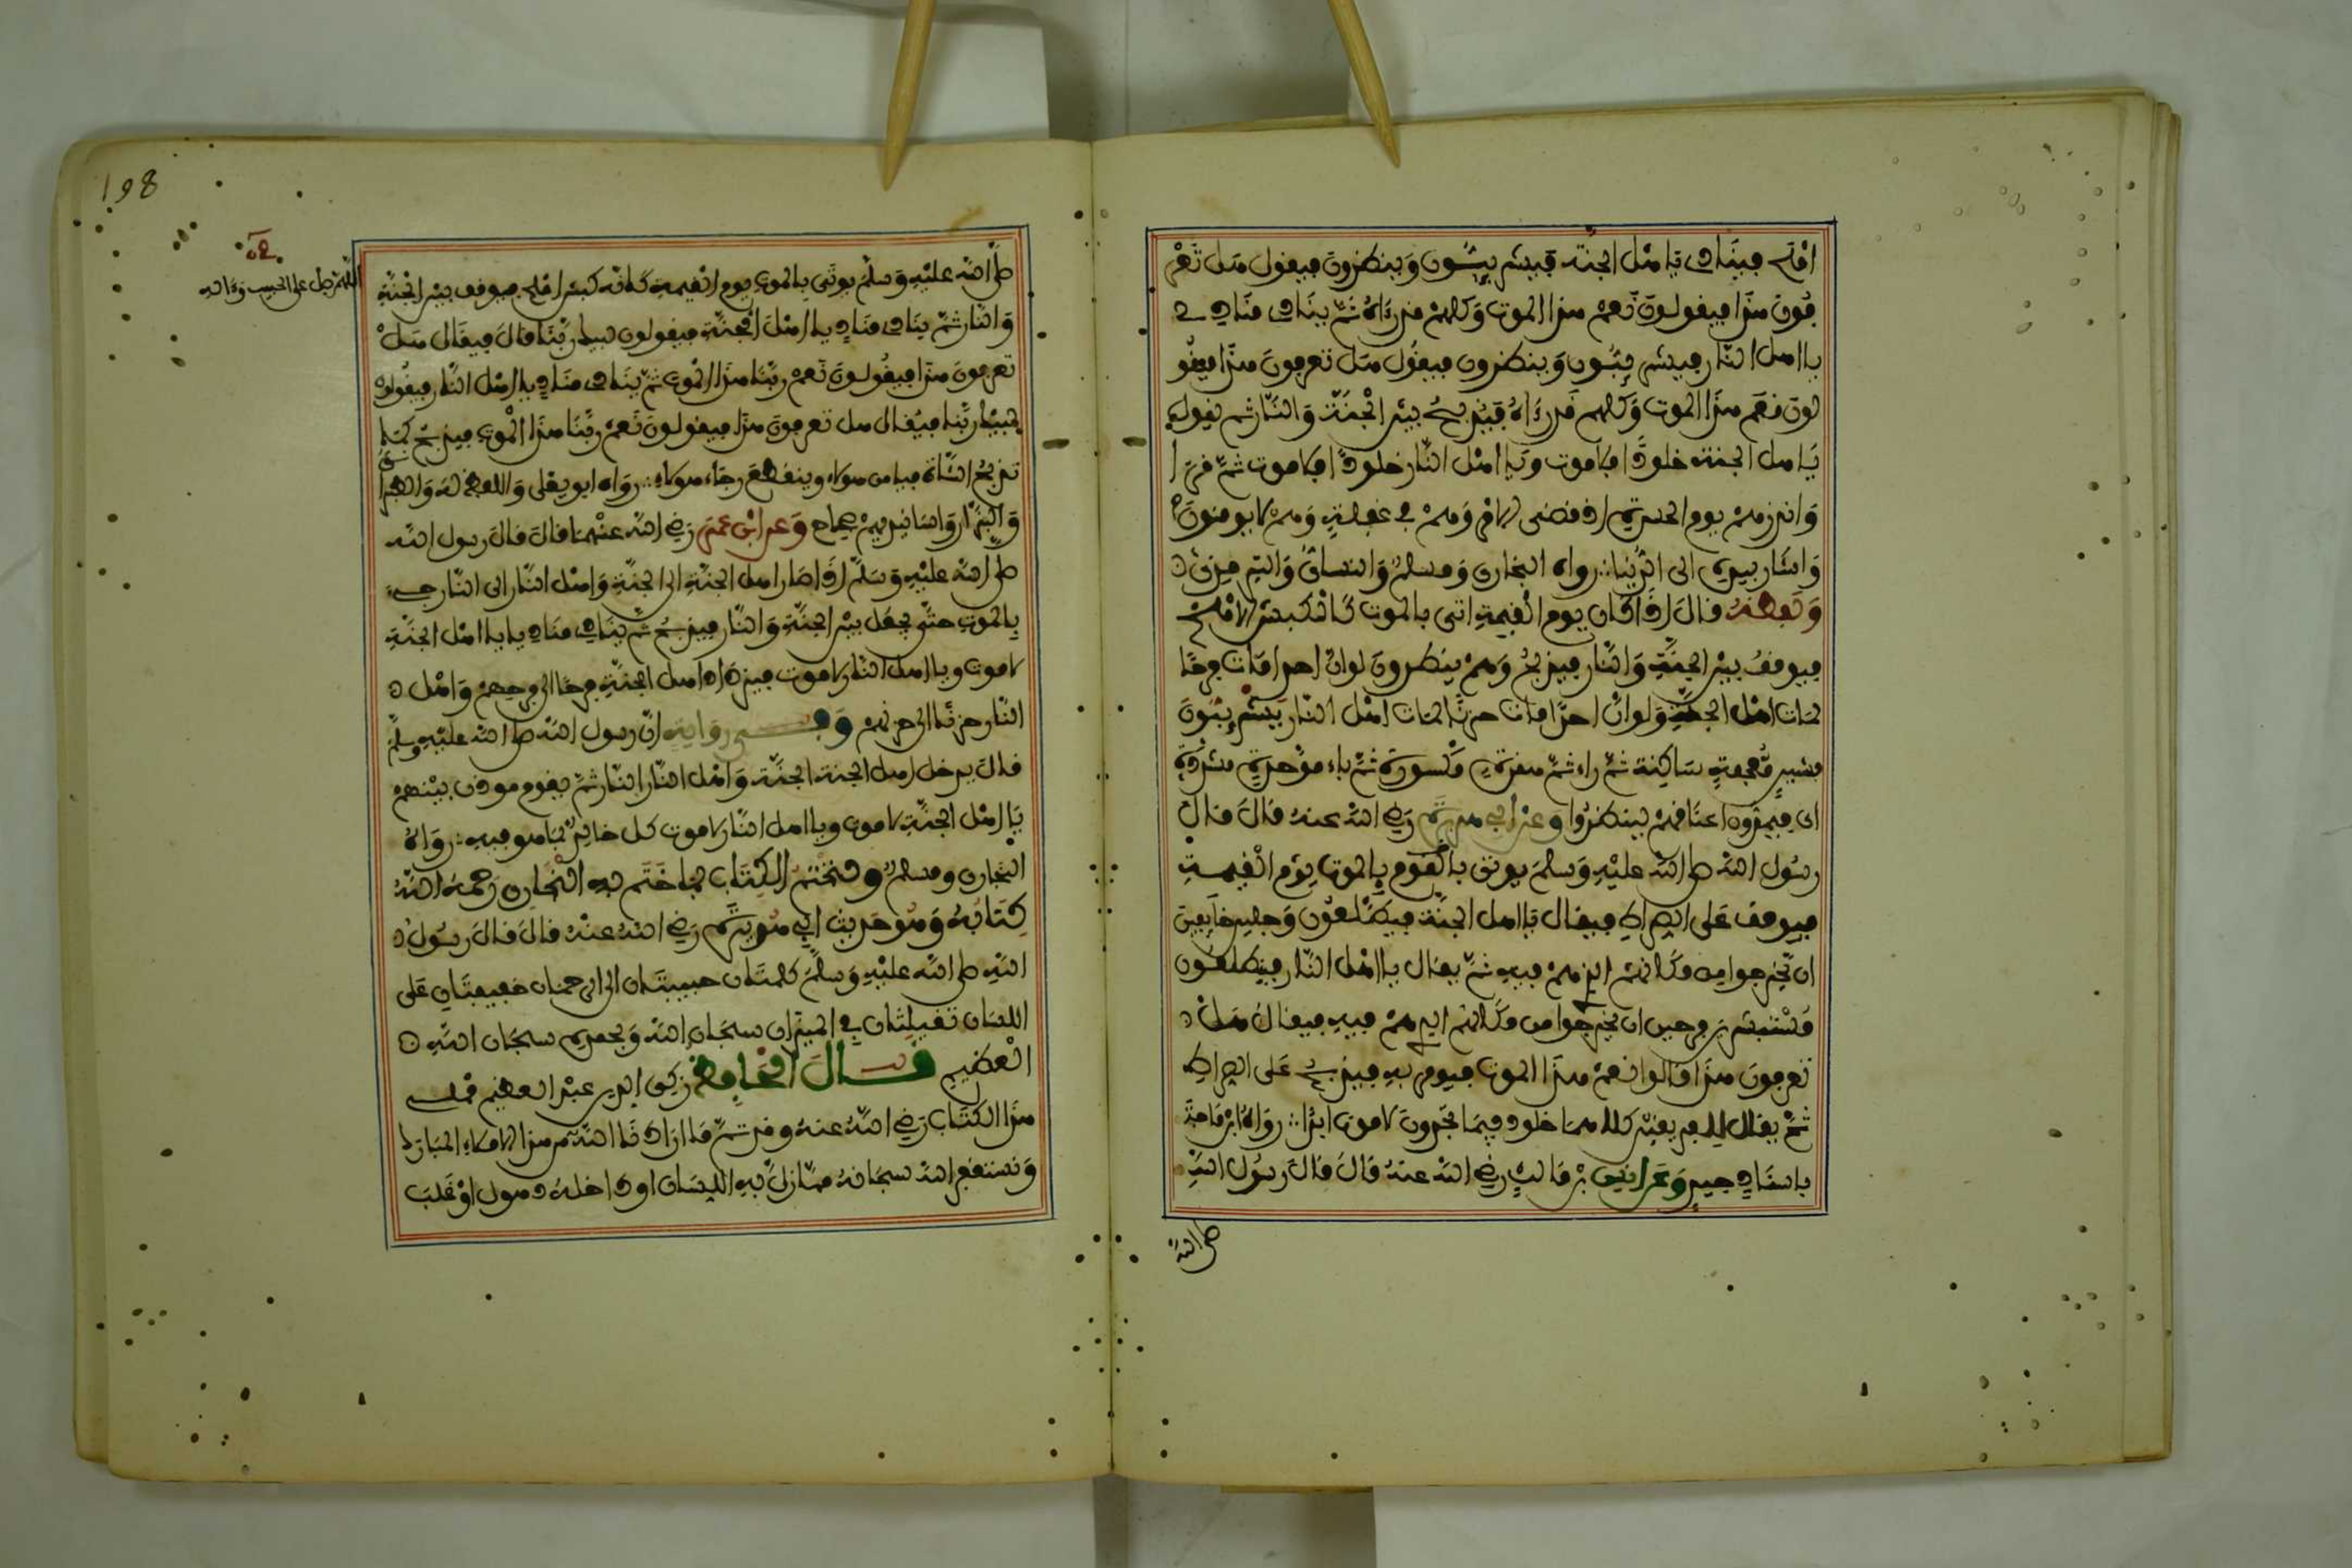 املح فينادي يا اهل الجنة فيشرئبون وينظرون فيقول هل تعر
فون هذا فيقولون نعم هذا الموت وكلهم قد رءاه ثم ينادي مناد
يا اهل النار فيشرئبون وينظرون فيقول هل تعرفون هذا فيقو
لون نعم هذا الموت وكلهم قد رءاه فيذبح بين الجنة والنار ثم يقول
يا اهل الجنة خلود فلا موت ويا اهل النار خلود فلا موت ثم قرأ
وانذرهم يوم الحسرة اذ قضي الامر وهم في غفلة وهم لا يومنون
واشار بيده الى الدنيا رواه البخاري ومسلم والنسائي والترمذي
ولفظه قال اذا كان يوم القيمة اتي بالموت كالكبش الاملح
فيوقف بين الجنة والنار فيذبح وهم ينظرون لو ان احدا مات فرحا
لمات اهل الجنة ولو ان احدا مات حزنا لمات اهل النار يشرئبون
بشين معجمة ساكنة ثم راء ثم همزة مكسورة ثم باء موحدة مشددة
اي يمدون اعناقهم لينظروا وعن ابي هريرة رضي الله عنه قال قال
رسول الله صلى الله عليه وسلم يوتى بالموت يوم القيمة
فيوقف على الصراط فيقال يا اهل الجنة فيطلعون وجلين خايفين
ان يخرجوا من مكانهم الذي هم فيه ثم يقال يا اهل النار فيطلعون
مستبشرين فرحين ان يخرجوا من مكانهم الذي هم فيه فيقال هل
تعرفون هذا قالوا نعم هذا الموت فيومر به فيذبح على الصراط
ثم يقال للفريقين كلاهما خلود فيما تجدون لا موت ابدا رواه ابن ماجة
باسناد جيد وعن انس بن مالك رضي الله عنه قال قال رسول الله
صلى الله
198
اللهم صل على الحبيب وءاله
صلى الله عليه وسلم يوتى بالموت يوم القيمة كانه كبش املح فيوقف بين الجنة
والنار ثم ينادي مناد يا اهل الجنة فيقولون لبيك ربنا قال فيقال هل
تعرفون هذا فيقولون نعم ربنا هذا الموت ثم ينادي مناد يا اهل النار فيقولون
لبيك ربنا فيقال هل تعرفون هذا فيقولون نعم ربنا هذا الموت فيذبح كما
تذبح الشاة فيامن هولاء وينقطع رجاء هولاء رواه ابو يعلى واللفظ له والطبراني
والبزار واسانيدهم صحاح وعن ابن عمر رضي الله عنهما قال قال رسول الله
صلى الله عليه وسلم اذا صار اهل الجنة الى الجنة واهل النار الى النار جيء
بالموت حتى يجعل بين الجنة والنار فيذبح ثم ينادي مناد يا اهل الجنة
لا موت ويا اهل النار لا موت فيزداد اهل الجنة فرحا الى فرحهم واهل
النار حزنا الى حزنهم وفي رواية ان رسول الله صلى الله عليه وسلم
قال يدخل اهل الجنة الجنة واهل النار النار ثم يقوم موذن بينهم
يا اهل الجنة لا موت ويا اهل النار لا موت كل خالد فيما هو فيه رواه
البخاري ومسلم ونختم الكتاب بما ختم به البخاري رحمه الله
كتابه وهو حديث ابي هريرة رضي الله عنه قال قال رسول
الله صلى الله عليه وسلم كلمتان حبيبتان الى الرحمان خفيفتان على
اللسان ثقيلتان في الميزان سبحان الله وبحمده سبحان الله
العظيم قال الحافظ زكي الدين عبد العظيم مملي
هذا الكتاب رضي الله عنه وقد تم ما اراد نا الله من هذا الاملاء المبارك
ونستغفر الله سبحانه مما زل به اللسان او داخله ذهول او غلب